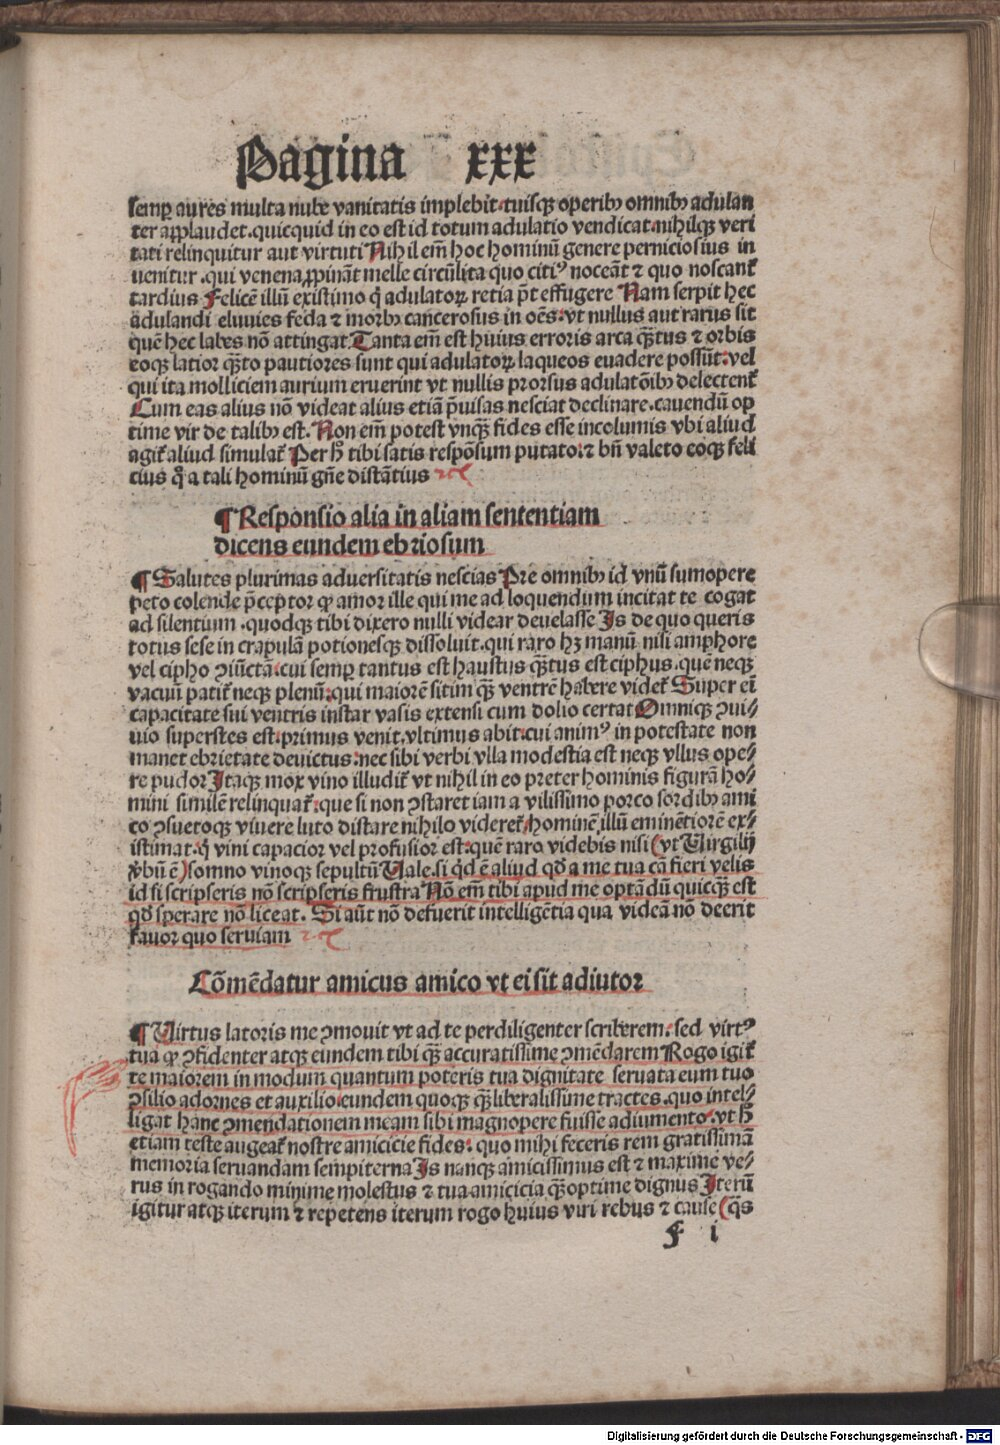 Pagina xxx
semꝑ aures multa nube vanitatis implebit·tuisqꝫ operibꝫ omnibꝫ adulan
ter applaudet·quicquid in eo est id totum adulatio vendicat·nihilqꝫ veri
tati relinquitur aut virtuti Nihil em̄ hoc hominū genere perniciosius in
uenitur·qui venena ꝓpināt melle circūlita quo citiꝰ noceāt ⁊ quo noscant᷑
tardius Felicē illū existimo q̇ adulatoꝝ retia p̄t effugere Nam serpit hec
adulandi eluuies feda ⁊ morbꝫ cancerosus in oēs:vt nullus aut rarus sit
quē hec labes nō attingat Tanta em̄ est huius erroris arca qȝ̄tus ⁊ orbis
eoqꝫ latior qȝ̄to pautiores sunt qui adulatoꝝ laqueos euadere possūt:vel
qui ita molliciem aurium eruerint vt nullis prorsus adulatōibꝫ delectent᷑
Cum eas alius nō videat alius etiā p̄uisas nesciat declinare·cauendū op
time vir de talibꝫ est·Non em̄ potest vnqȝ̄ fides esse incolumis vbi aliud
agit᷑ aliud simulat᷑ Per h̄ tibi satis respōsum putato:⁊ bn̄ valeto eoqꝫ feli
cius q̄ a tali hominū gn̄e distātius ⁊c̄
¶ Responsio alia in aliam sententiam
dicens eundem ebriosum
¶ Salutes plurimas aduersitatis nescias Pre omnibꝫ id vnū sumopere
peto colende p̄ceptor ꝙ amor ille qui me ad loquendum incitat te cogat
ad silentium·quodqꝫ tibi dixero nulli videar deuelasse Is de quo queris
totus sese in crapulā potionesqꝫ dissoluit·qui raro hꝫ manū nisi amphore
vel cipho ɔiūctā:cui semꝑ tantus est haustus qȝ̄tus est ciphus·quē neqꝫ
vacuū patit᷑ neqꝫ plenū:qui maiorē sitim qȝ̄ ventrē habere videt᷑ Super eī
capacitate sui ventris instar vasis extensi cum dolio certat Omniqꝫ ɔui⸗
uio superstes est·primus venit·vltimus abit·cui animꝰ in potestate non
manet ebrietate deuictus:nec sibi verbi vlla modestia est neqꝫ vllus ope⸗
re pudor Itaqꝫ mox vino illudit᷑ vt nihil in eo preter hominis figurā ho⸗
mini similē relinquat᷑:que si non ɔstaret iam a vilissimo porco sordibꝫ ami
co ɔsuetoqꝫ viuere luto distare nihilo videret᷑·hominē illū eminētiorē ex⸗
istimat·q̇ vini capacior vel profusior est·quē raro videbis nisi (vt Virgilij
ꝟbū ē) somno vinoqꝫ sepultū Vale·si q̇d ē aliud qd̄ a me tua cā fieri velis
id si scripseris nō scripseris frustra Nō em̄ tibi apud me optādū quicqȝ̄ est
qd̄ sperare nō liceat· Si aūt nō defuerit intelligētia qua videā nō deerit
fauor quo seruiam ⁊c̄
Cōmēdatur amicus amico vt ei sit adiutor
¶ Virtus latoris me ɔmouit vt ad te perdiligenter scriberem:sed virtꝰ
tua ꝙ ɔfidenter atqꝫ eundem tibi qȝ̄ accuratissime ɔmēdarem Rogo igit᷑
te maiorem in modum quantum poteris tua dignitate seruata eum tuo
ɔsilio adornes et auxilio·eundem quoqꝫ qȝ̄ liberalissime tractes·quo intel⸗
ligat hanc ɔmendationem meam sibi magnopere fuisse adiumento·vt h̄
etiam teste augeat᷑ nostre amicicie fides: quo mihi feceris rem gratissimā
memoria seruandam sempiterna Is nanqꝫ amicissimus est ⁊ maxime ve⸗
rus in rogando minime molestus ⁊ tua amicicia qȝ̄ optime dignus Iterū
igitur atqꝫ iterum ⁊ repetens iterum rogo huius viri rebus ⁊ cause (q̄s
f i
Digitalisierung gefördert durch die Deutsche Forschungsgemeinschaft - DFG